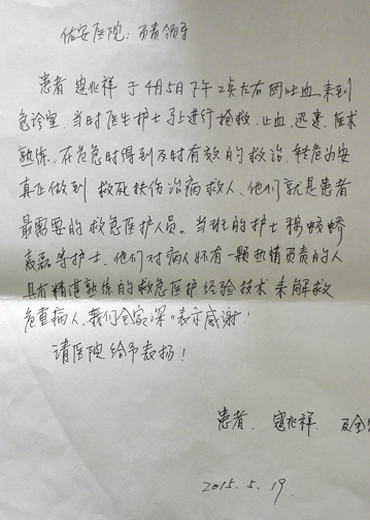 佑安医院：负责领导
患者 寇兆祥 于4月5日下午2点左右因吐血来到
急诊室，当时医生护士马上进行抢救，止血、迅速，医术
熟练，在危急时得到及时有效的救治，转危为安
真正做到 救死扶伤治病救人，他们就是患者
最需要的救急医护人员。当班的护士
袁磊等护士，他们对病人怀有一颗热情负责的人
具有精湛熟练的救急医护经验技术来解救
危重病人，我们全家深々表示感谢！
请医院给予表扬！
患者、寇兆祥 及全
2015.5.19.